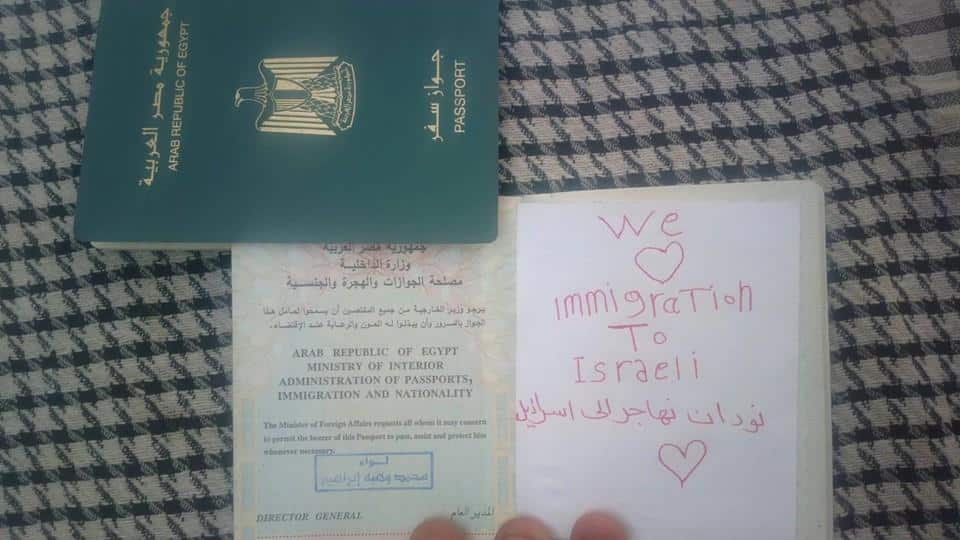 جمهورية مصر العربية
ARAB REPUBLIC OF EGYPT
جـواز سـفر
PASSPORT
جمهورية مصر العربية
وزارة الداخليـة
مصلحة الجوازات والهجرة والجنسـية
يرجـو وزيـر الخـارجيـة مـن جميع المختصين أن يسمحـوا لحـامل هـذا
الجواز بالمـرور وأن يبذلـوا لـه العـون والرعاية عنـد الإقتضاء.
ARAB REPUBLIC OF EGYPT
MINISTRY OF INTERIOR
ADMINISTRATION OF PASSPORTS,
IMMIGRATION AND NATIONALITY
The Minister of Foreign Affairs requests all whom it may concern
to permit the bearer of this Passport to pass, assist and protect him
whenever necessary.
لـواء
محمد وهبه إبراهيم
DIRECTOR GENERAL المدير العام
We
immigration
To
Israeli
نود ان نهاجر الى اسرائيل